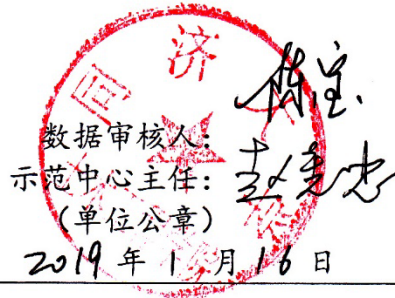 同济
数据审核人：陈宝
示范中心主任：赵宪忠
（单位公章）
2019年1月16日